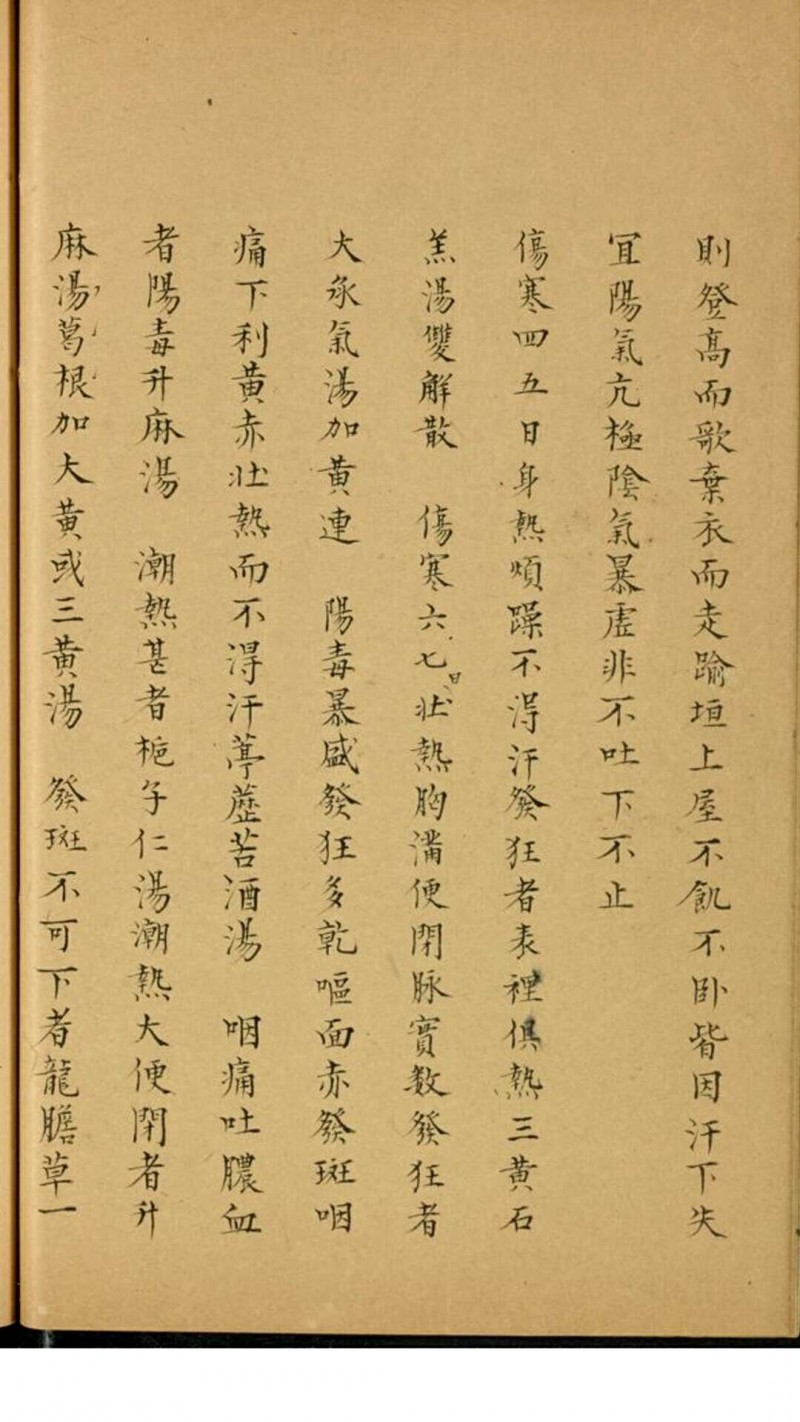 則登高而歌棄衣而走踰垣上屋不飢不卧皆因汗下失
宜陽氣亢極陰氣暴虛非不吐下不止
傷寒四五日身熱煩躁不得汗發狂者表裡俱熱三黄石
羔湯雙解散　傷寒六七日壯熱胸滿便閉脉實数發狂者
大承氣湯加黄連　陽毒暴盛發狂多乾嘔面赤發斑咽
痛下利黄赤壯熱而不得汗葶藶苦酒湯　咽痛吐膿血
者陽毒升麻湯　潮熱甚者梔子仁湯潮熱大便閉者升
麻湯葛根加大黄或三黄湯　發斑不可下者龍膽草一